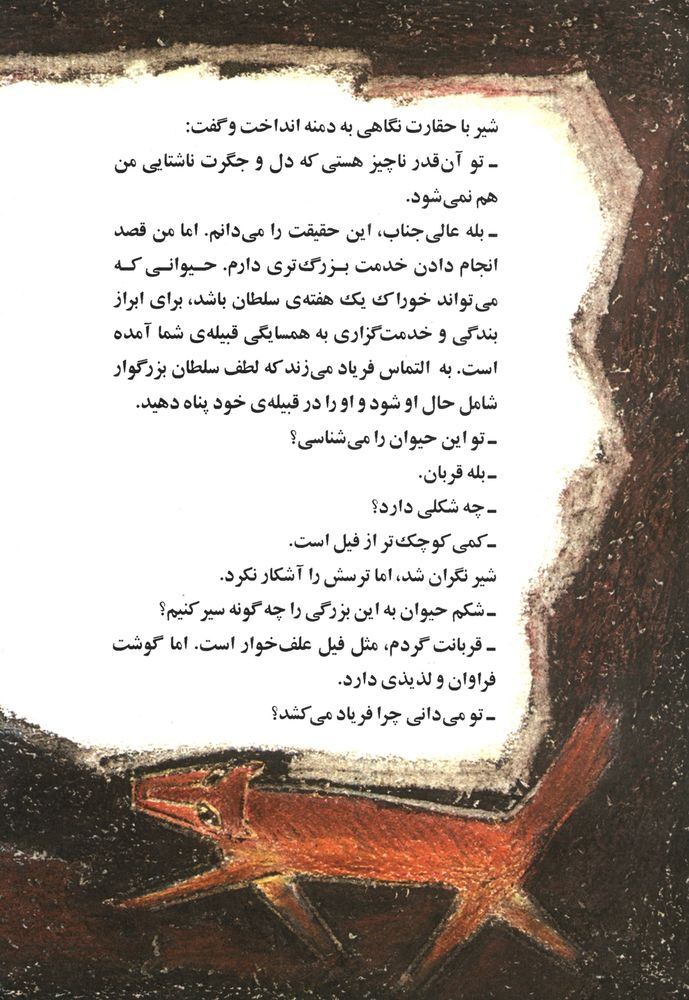 شیر با حقارت نگاهی به دمنه انداخت و گفت:
ـ تو آن‌قدر ناچیز هستی که دل و جگرت ناشتایی من
هم نمی‌شود.
ـ بله عالی‌جناب، این حقیقت را می‌دانم. اما من قصد
انجام دادن خدمت بـزرگ‌تری دارم. حـیوانـی کـه
می‌تواند خوراک یک هفته‌ی سلطان باشد، برای ابراز
بندگی و خدمت‌گزاری به همسایگی قبیله‌ی شما آمده
است. به التماس فریاد می‌زند که لطف سلطان بزرگوار
شامل حال او شود و او را در قبیله‌ی خود پناه دهید.
ـ تو این حیوان را می‌شناسی؟
ـ بله قربان.
ـ چه شکلی دارد؟
ـ کمی کوچک‌تر از فیل است.
شیر نگران شد، اما ترسش را آشکار نکرد.
ـ شکم حیوان به این بزرگی را چه گونه سیر کنیم؟
ـ قربانت گردم، مثل فیل علف‌خوار است. اما گوشت
فراوان و لذیذی دارد.
ـ تو می‌دانی چرا فریاد می‌کشد؟